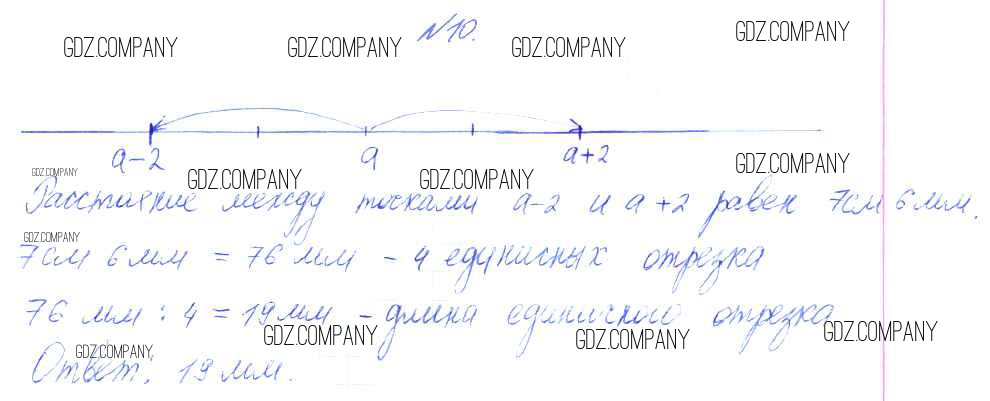 №10.
GDZ.COMPANY GDZ.COMPANY GDZ.COMPANY GDZ.COMPANY
a-2 a a+2
GDZ.COMPANY GDZ.COMPANY GDZ.COMPANY GDZ.COMPANY
Расстояние между точками a-2 и a+2 равен 7см 6мм.
GDZ.COMPANY
7см 6мм = 76 мм - 4 единисных отрезка
76 мм : 4 = 19мм - длина единисного отрезка
GDZ.COMPANY GDZ.COMPANY GDZ.COMPANY GDZ.COMPANY
Ответ: 19мм.